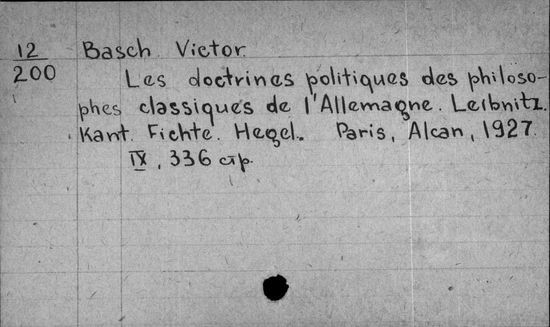 12 Basch Victor
200 Les doctrines politiques des philoso-
phes classiques de l'Allemagne. Leibnitz.
Kant. Fichte. Hegel. Paris, Alcan, 1927.
IX, 336 стр.